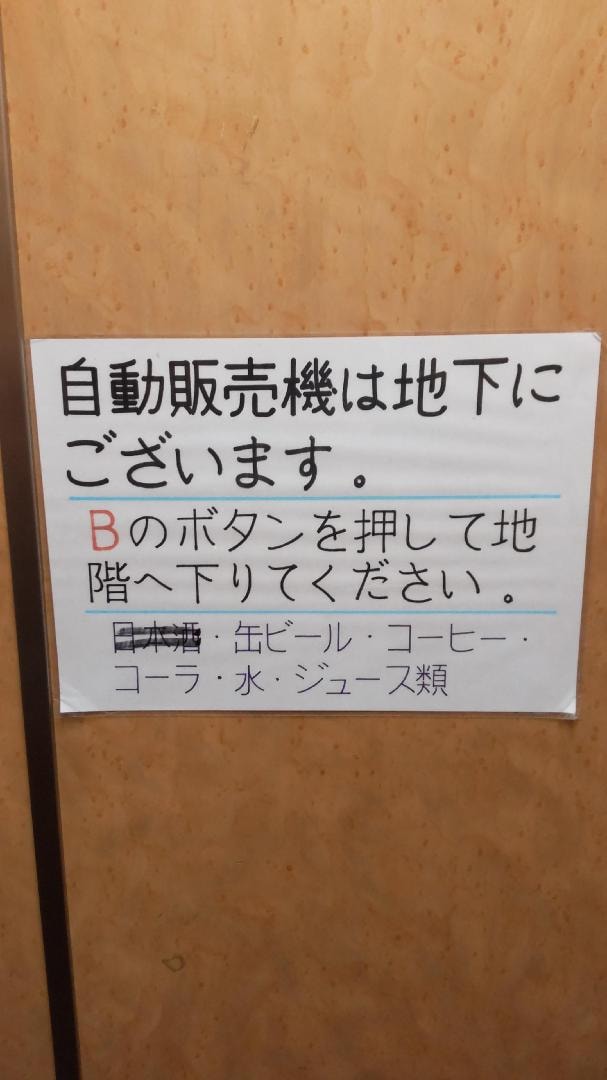 自動販売機は地下に
ございます。
Bのボタンを押して地
階へ下りてください。
日本酒・缶ビール・コーヒー・
コーラ・水・ジュース類